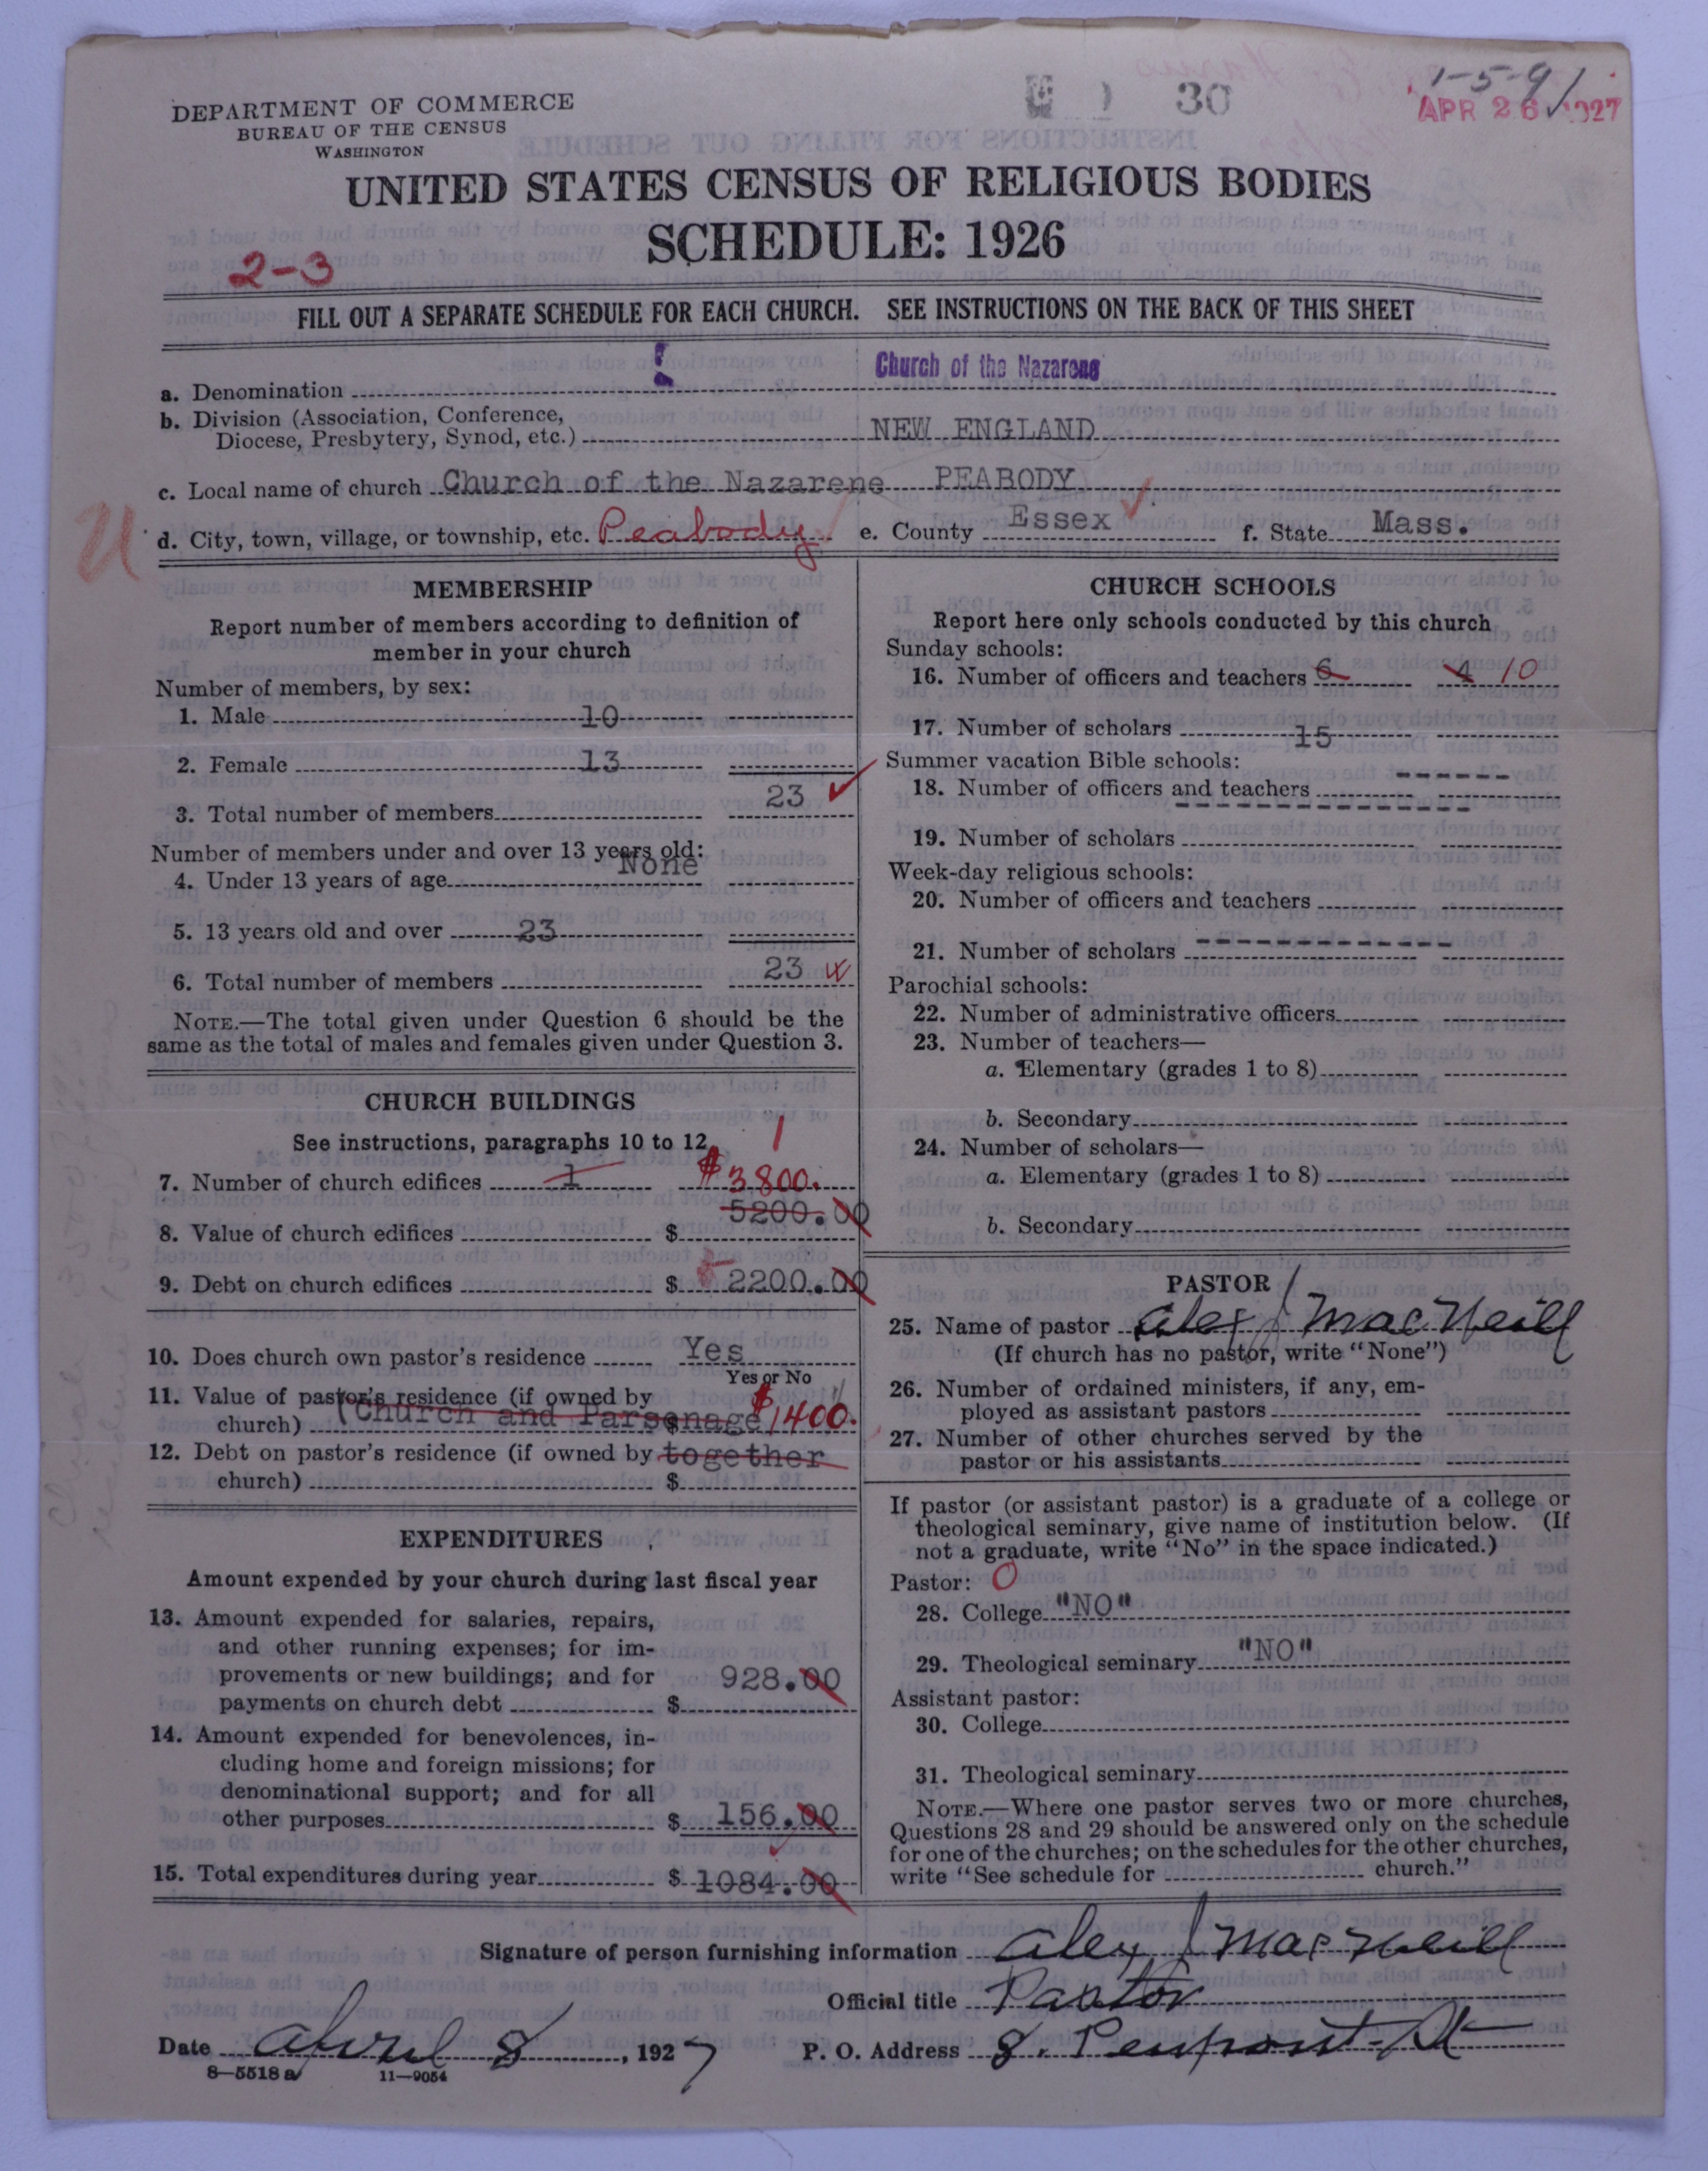 DEPARTMENT OF COMMERCE
BUREAU OF THE CENSUS
WASHINGTON
30
1-5-91
APR 26 1927
UNITED STATES CENSUS OF RELIGIOUS BODIES
SCHEDULE: 1926
2-3
FILL OUT A SEPARATE SCHEDULE FOR EACH CHURCH. SEE INSTRUCTIONS ON THE BACK OF THIS SHEET
a. Denomination Church of the Nazarene
b. Division (Association, Conference,
Diocese, Presbytery, Synod, etc.) NEW ENGLAND
c. Local name of church Church of the Nazarene PEABODY
U d. City, town, village, or township, etc. Peabody e. County Essex f. State Mass.
MEMBERSHIP
Report number of members according to definition of
member in your church
Number of members, by sex:
1. Male 10
2. Female 13
3. Total number of members 23
Number of members under and over 13 years old:
4. Under 13 years of age None
5. 13 years old and over 23
6. Total number of members 23
NOTE.—The total given under Question 6 should be the
same as the total of males and females given under Question 3.
CHURCH BUILDINGS
See instructions, paragraphs 10 to 12
7. Number of church edifices 1 1
$3800.
8. Value of church edifices $ 5200.00
9. Debt on church edifices $ 2200.00
10. Does church own pastor's residence Yes
Yes or No
11. Value of pastor's residence (if owned by
church) (Church and Parsonage $1400.
12. Debt on pastor's residence (if owned by together
church) $
EXPENDITURES
Amount expended by your church during last fiscal year
13. Amount expended for salaries, repairs,
and other running expenses; for im-
provements or new buildings; and for
payments on church debt $ 928.00
14. Amount expended for benevolences, in-
cluding home and foreign missions; for
denominational support; and for all
other purposes $ 156.00
15. Total expenditures during year $ 1084.00
CHURCH SCHOOLS
Report here only schools conducted by this church
Sunday schools:
16. Number of officers and teachers 6 4 10
17. Number of scholars 15
Summer vacation Bible schools:
18. Number of officers and teachers
19. Number of scholars
Week-day religious schools:
20. Number of officers and teachers
21. Number of scholars
Parochial schools:
22. Number of administrative officers
23. Number of teachers—
a. Elementary (grades 1 to 8)
b. Secondary
24. Number of scholars—
a. Elementary (grades 1 to 8)
b. Secondary
PASTOR
25. Name of pastor Alex J MacNeill
(If church has no pastor, write "None")
26. Number of ordained ministers, if any, em-
ployed as assistant pastors
27. Number of other churches served by the
pastor or his assistants
If pastor (or assistant pastor) is a graduate of a college or
theological seminary, give name of institution below. (If
not a graduate, write "No" in the space indicated.)
Pastor: O
28. College "NO"
29. Theological seminary "NO"
Assistant pastor:
30. College
31. Theological seminary
NOTE.—Where one pastor serves two or more churches,
Questions 28 and 29 should be answered only on the schedule
for one of the churches; on the schedules for the other churches,
write "See schedule for church."
Signature of person furnishing information Alex J MacNeill
Official title Pastor
Date April 8, 1927 P. O. Address 8. Pierpont St
8—5518 a 11—9054